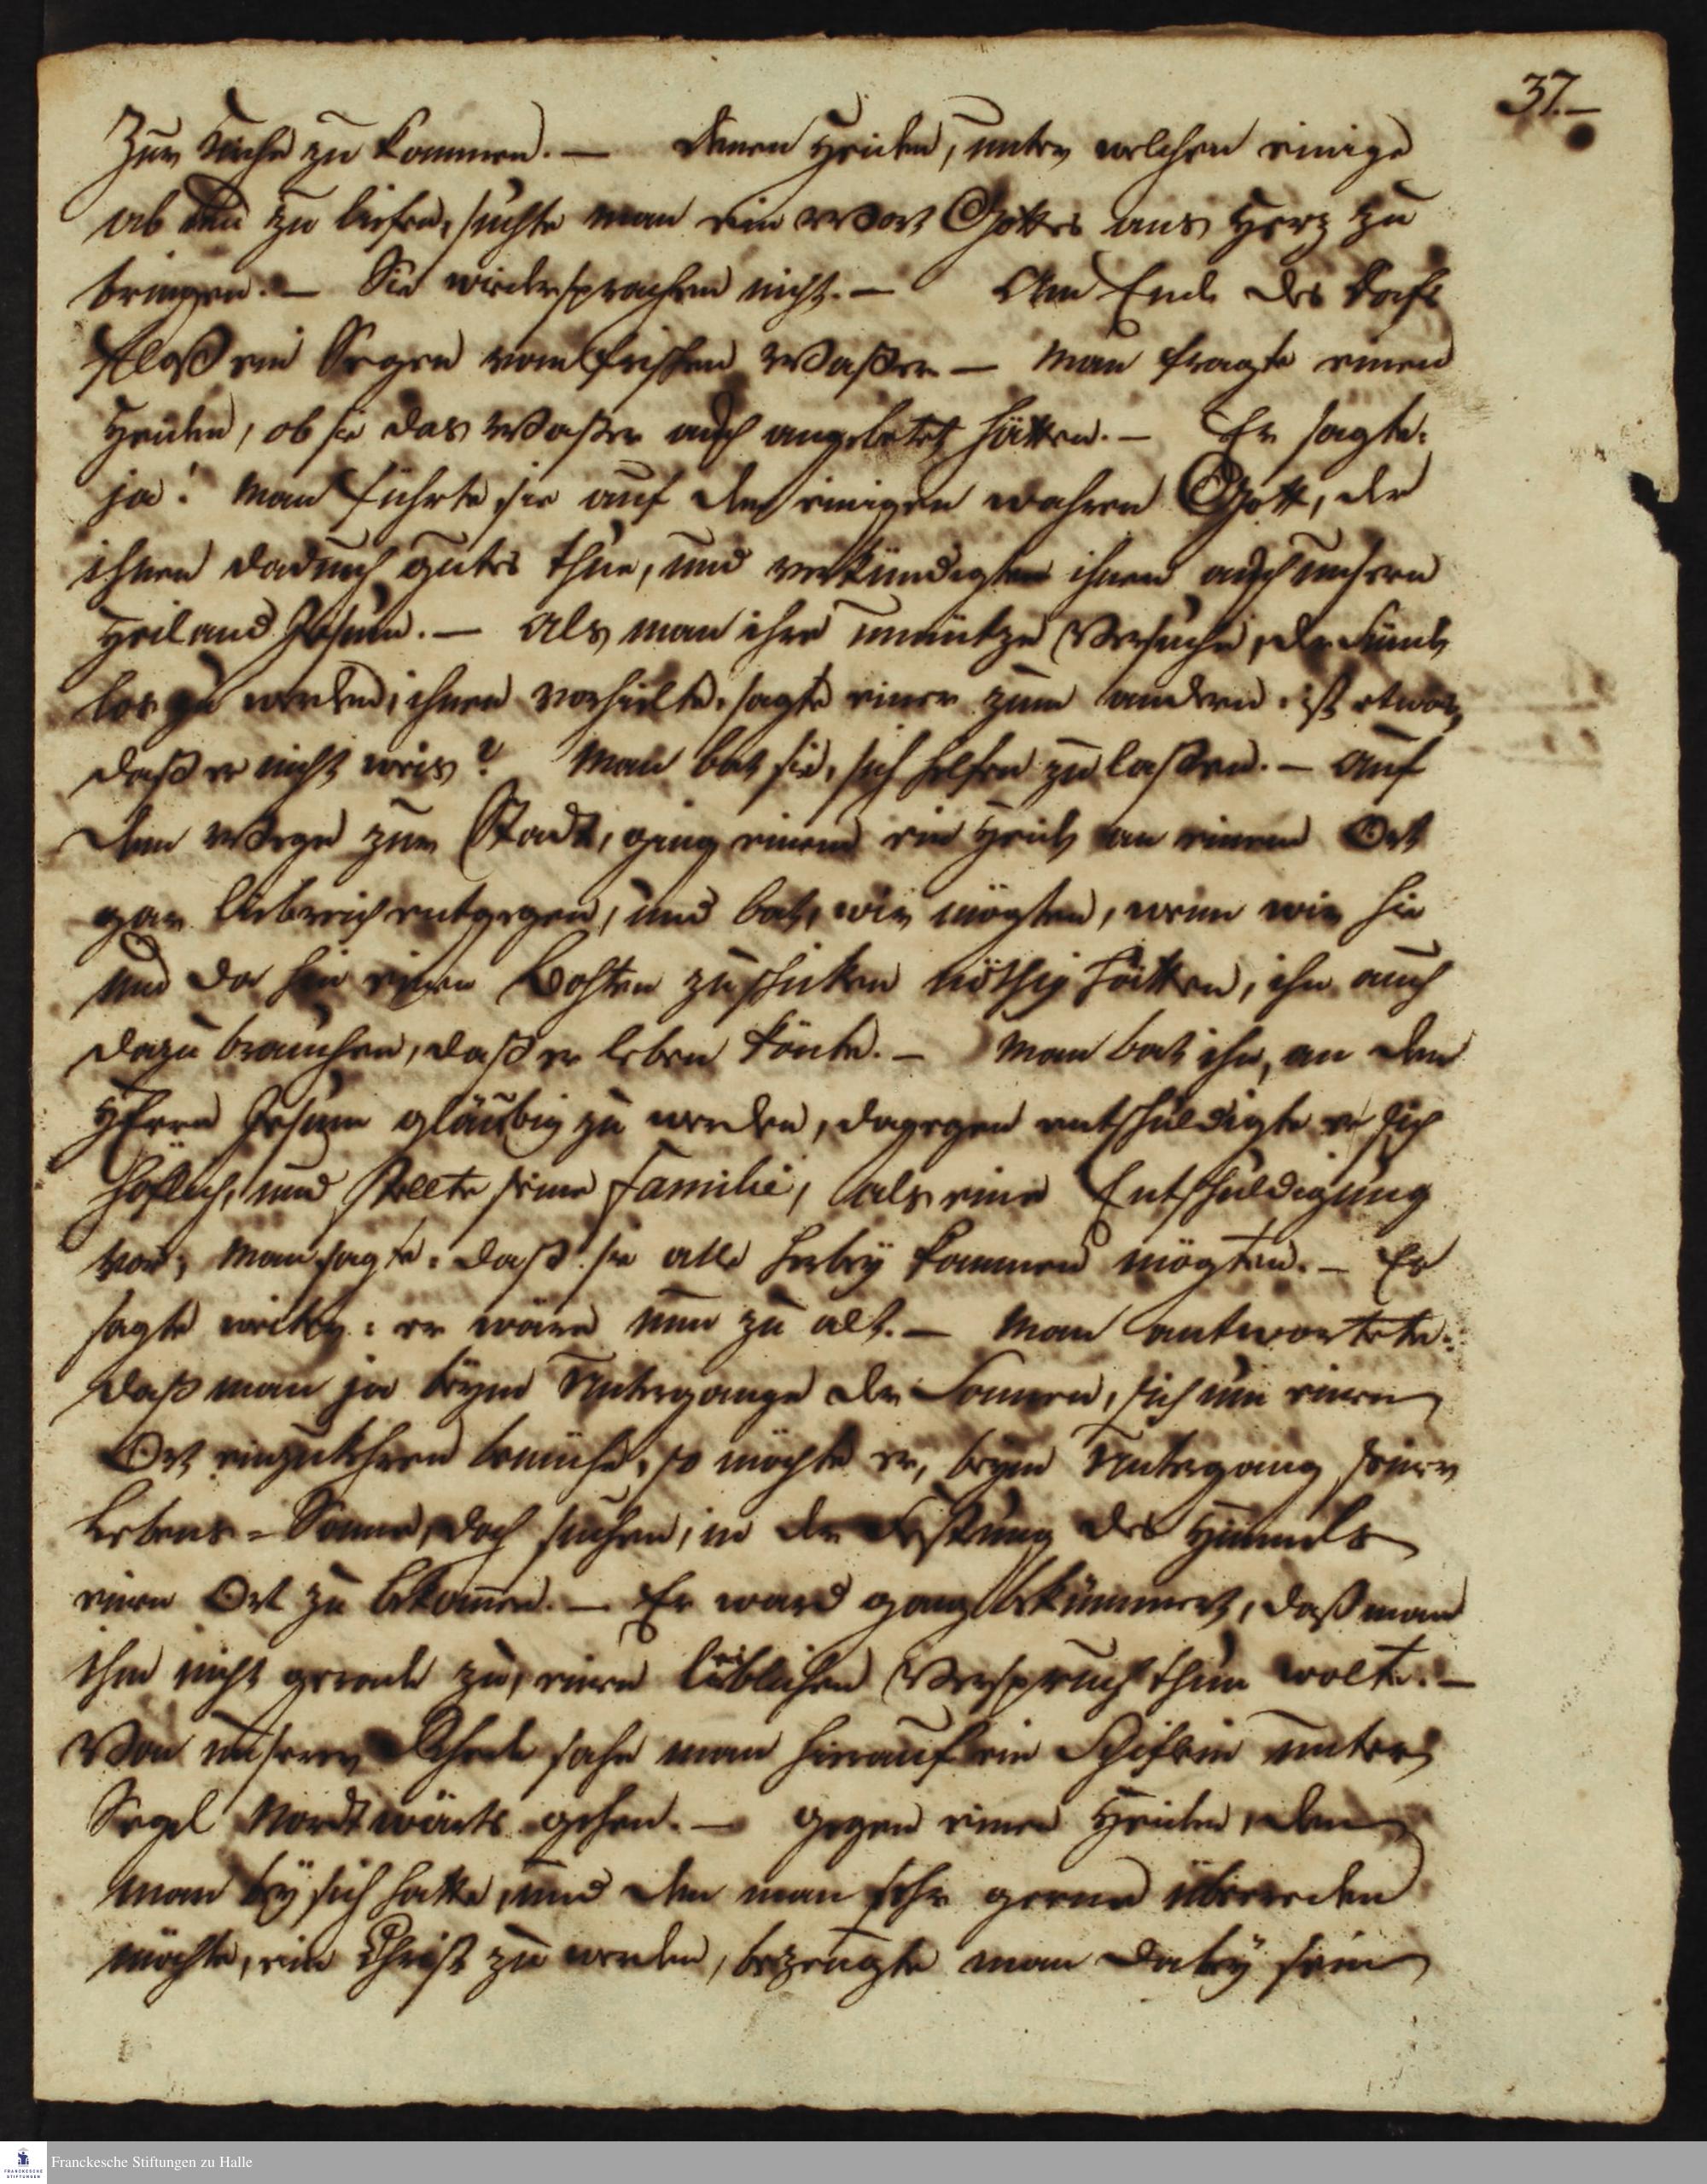 37.—
Zur Ruhe zu kommen. — Denen Heiden, unter welchen einige
ab und zu liefen, suchte man ein Wort Gottes ans Herz zu
bringen. — Sie wiedersprachen nicht. — Am Ende des Dorfs
floß ein Segen vom frischen Waßer — Man fragte einen
Heiden, ob sie das Waßer auch angebetet hätten. — Er sagte:
ja! Man führte sie auf den einigen wahren Gott, der
ihnen dadurch gutes thue, und verkündigte ihnen auch unsern
Heiland Jesum. — Als man ihre unnütze Versuche, der Sünde
los zu werden, ihnen vorhielte, sagte einer zum andern: ist etwas,
daß er nicht weis? Man bat sie, sich helfen zu laßen. — Auf
dem Wege zur Stadt, ging einem ein Heide an einem Ort
gar liebreich entgegen, und bat, wir mögten, wenn wir hie
und da hin einen Bohten zu schicken nöthig hätten, ihn auch
dazu brauchen, daß er leben könte. — Man bat ihn, an den
HErrn Jesum gläubig zu werden, dagegen entschuldigte er sich
höflich, und stellte seine Familie, als eine Entschuldigung
vor; Man sagte: daß sie alle herbey kommen mögten. — Er
sagte weiter: er wäre nun zu alt. — Man antwortete:
daß man ja beym Untergange der Sonnen, sich um einen
Ort einzukehren bemühe, so möchte er, beym Untergang seiner
Lebens-Sonne, doch suchen, in der Festung des Himmels
einen Ort zu bekomen. — Er ward ganz bekümmert, daß man
ihm nicht gerade zu, einen leiblichen Verspruch thun wolte. —
Von unserer Rhede sahe man hierauf ein Schiflein unter
Segel Nordtwärts gehen. — Gegen einen Heiden, den
man bey sich hatte, und den man sehr gerne überreden
möchte, ein Christ zu werden, bezeugte man dabey sein
Franckesche Stiftungen zu Halle
FRANCKESCHE
STIFTUNGEN